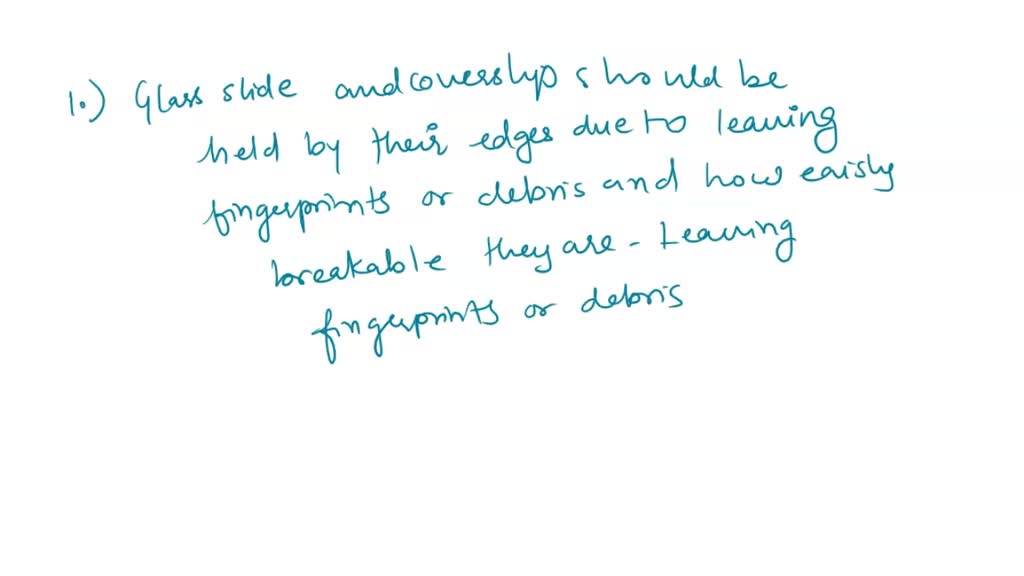 1.) Glass slide and coverslyp should be
held by their edges due to leaving
fingerprints or debris and how eaisly
breakable they are - Leaving
fingerprints or debris